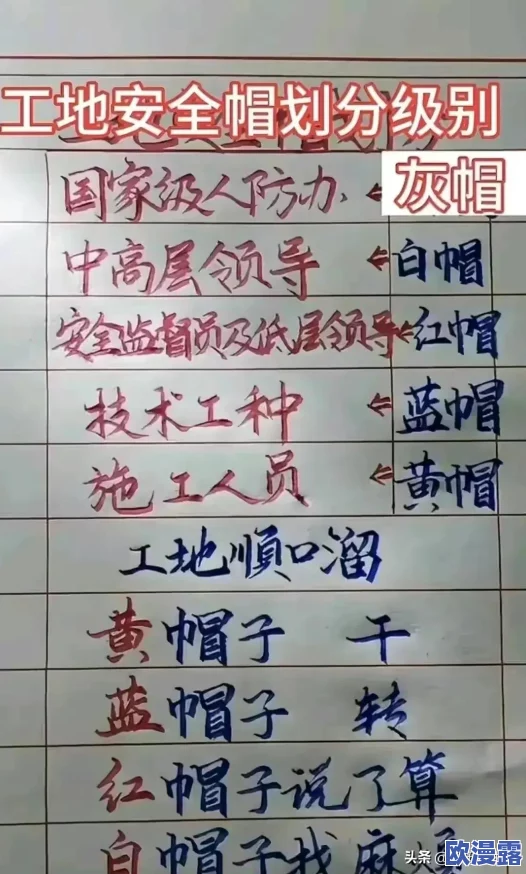 工地安全帽划分级别
国家级人防办 ← 灰帽
中高层领导 ← 白帽
安全监督员及低层领导 ← 红帽
技术工种 ← 蓝帽
施工人员 ← 黄帽
工地順口溜
黄帽子 干
蓝帽子 转
红帽子说了算
白帽子找麻
头条
欧漫露